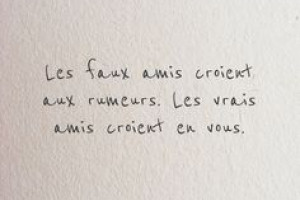 Les faux amis croient
aux rumeurs. Les vrais
amis croient en vous.